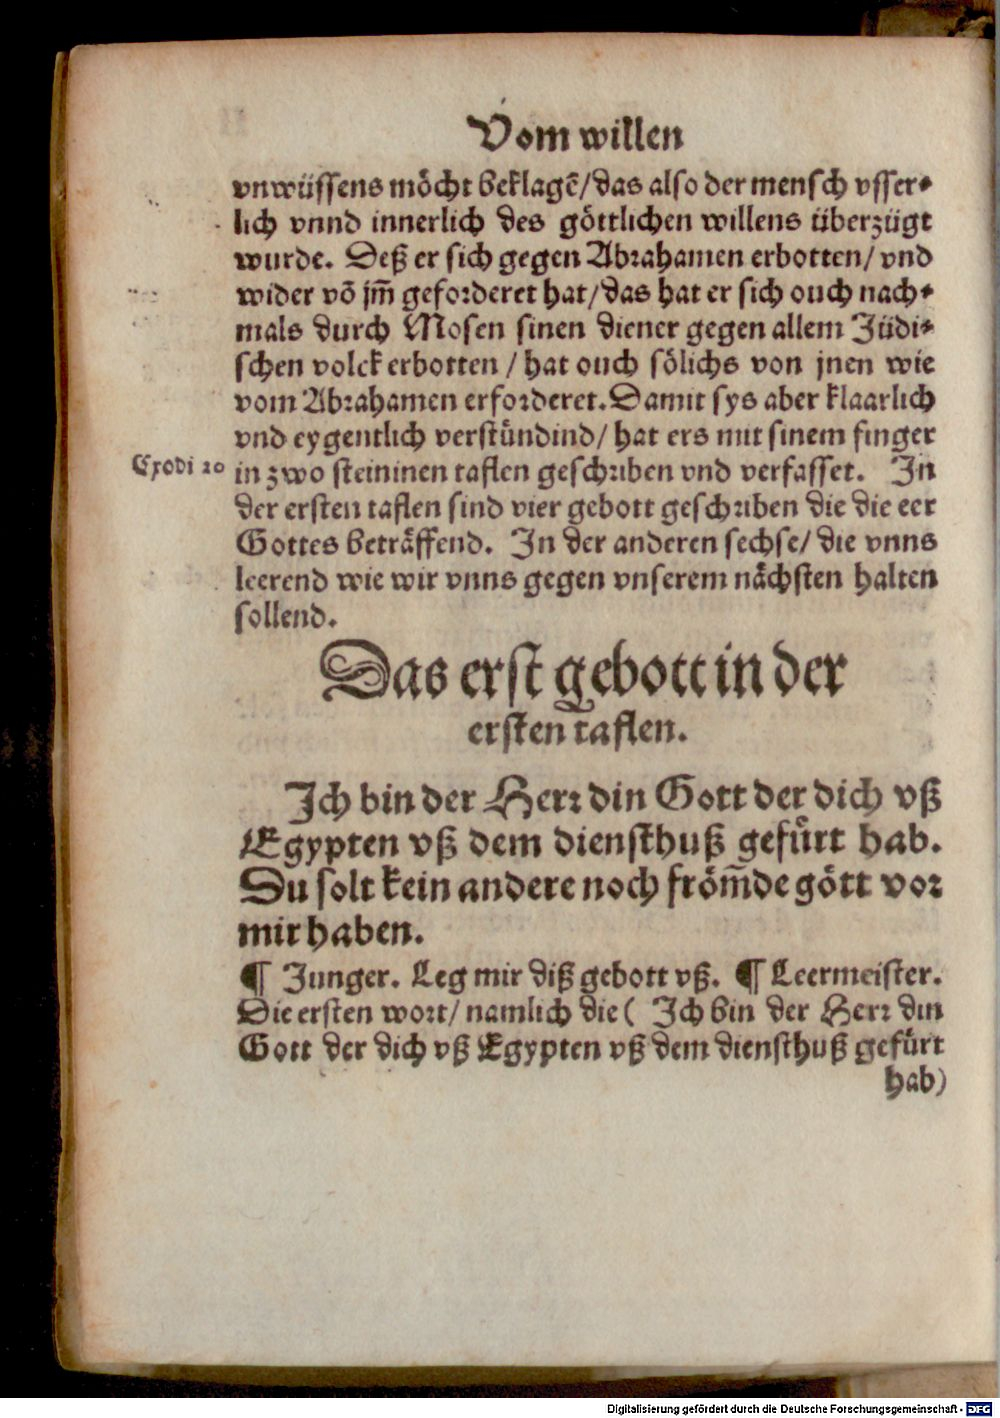 Vom willen
vnwüssens möcht beklagē/das also der mensch vsser⸗
lich vnnd innerlich des göttlichen willens überzügt
wurde. Deß er sich gegen Abrahamen erbotten/ vnd
wider vō jm̄ geforderet hat/das hat er sich ouch nach⸗
mals durch Mosen sinen diener gegen allem Jüdi⸗
schen volck erbotten / hat ouch sölichs von jnen wie
vom Abrahamen erforderet. Damit sys aber klaarlich
vnd eygentlich verstündind/ hat ers mit sinem finger
Exodi 20 in zwo steininen taflen geschriben vnd verfasset. In
der ersten taflen sind vier gebott geschriben die die eer
Gottes beträffend. In der anderen sechse/ die vnns
leerend wie wir vnns gegen vnserem nächsten halten
sollend.
Das erst gebott in der
ersten taflen.
Ich bin der Herr din Gott der dich vß
Egypten vß dem diensthuß gefürt hab.
Du solt kein andere noch fröm̄de gött vor
mir haben.
¶ Junger. Leg mir diß gebott vß. ¶ Leermeister.
Die ersten wort/ namlich die ( Ich bin der Herr din
Gott der dich vß Egypten vß dem diensthuß gefürt
hab)
Digitalisierung gefördert durch die Deutsche Forschungsgemeinschaft - DFG